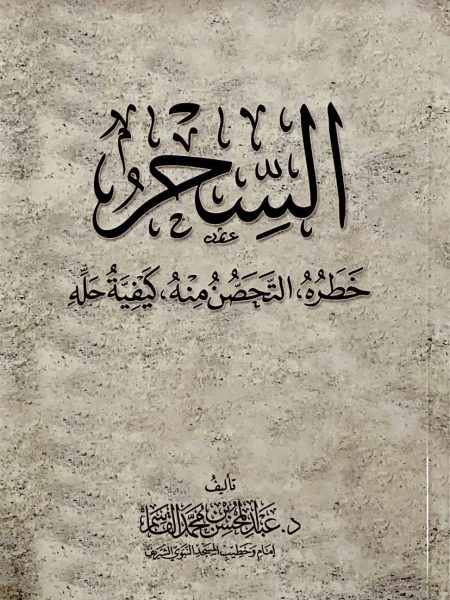 السِّحْرُ
خَطَرُهُ، التَّحَصُّنُ مِنْهُ، كَيْفِيَّةُ حَلِّهِ
تأليفُ
د. عَبْدُ الْمُحْسِنِ بْنُ مُحَمَّدٍ القَاسِمِ
إمَام وَخَطِيب المسْجِد النَّبَويّ الشَّرِيفِ